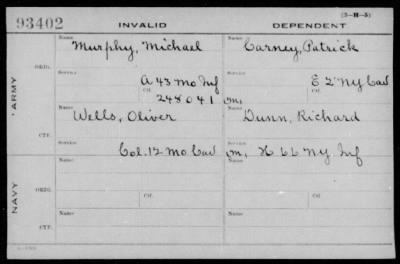 93402 INVALID DEPENDENT (3-H-5)
Name Name
Murphy, Michael Carney, Patrick
ORIG.
Service Service
A 43 Mo Inf E 2" NY Cav
Ctf. Ctf.
ARMY
248041 (m)
Name Name
Wells, Oliver Dunn, Richard
CTF.
Service Service
Col. 12 Mo Cav (m) H 66 NY Inf
Name Name
ORIG.
Service Ctf. Service Ctf.
NAVY
Name Name
CTF.
Service Service